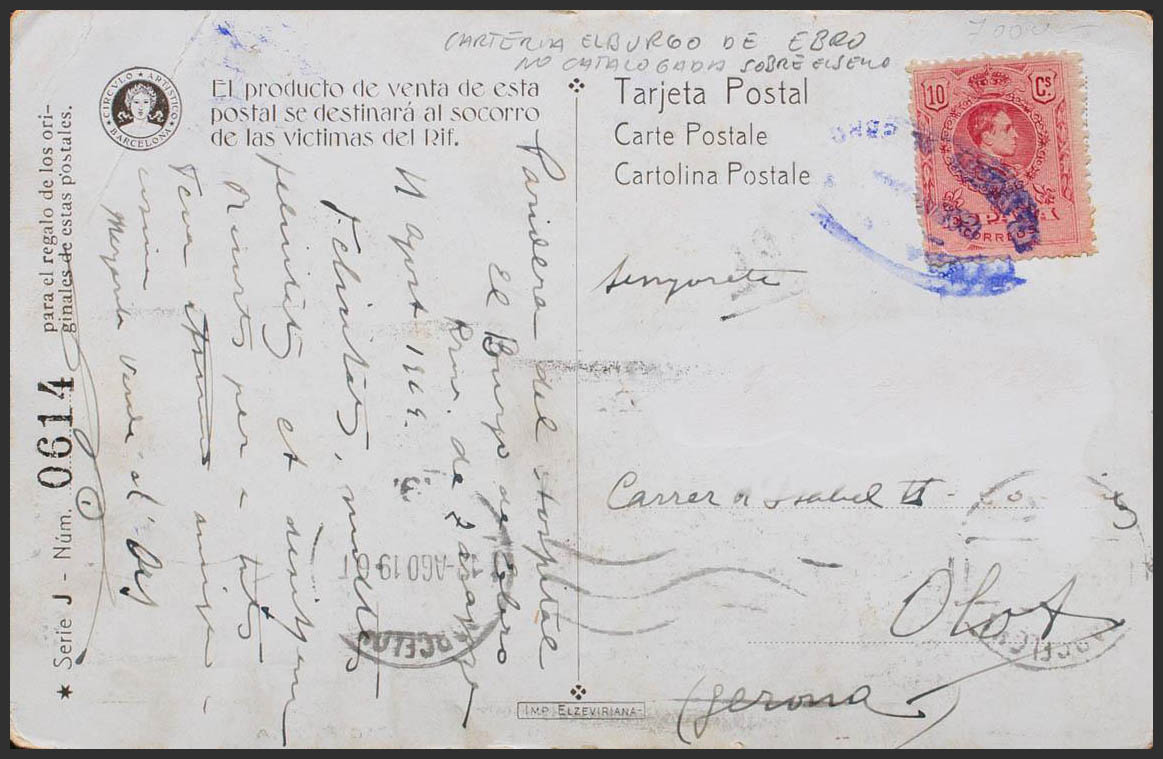 CARTERIA EL BURGO DE EBRO
NO CATALOGADA SOBRE EL SELLO
7000
CIRCVLO ARTISTICO
BARCELONA
El producto de venta de esta
postal se destinará al socorro
de las victimas del Rif.
Tarjeta Postal
Carte Postale
Cartolina Postale
10 Cs
CORREOS
EBRO
★ Serie J - Núm. 0614 para el regalo de los ori-
ginales de estas postales.
Panidera del Hospital
El Burgo de Ebro
Prov. de Zaragoza
11 agost 19
Felicitats, moltes
felicitats et desitjem
Records per a tots
Teva amiga
Mercede Verde
Senyoreta
Carrer a Isabel II
Olot
(Gerona)
AGO 19
BARCELONA
BARCELONA
IMP. ELZEVIRIANA